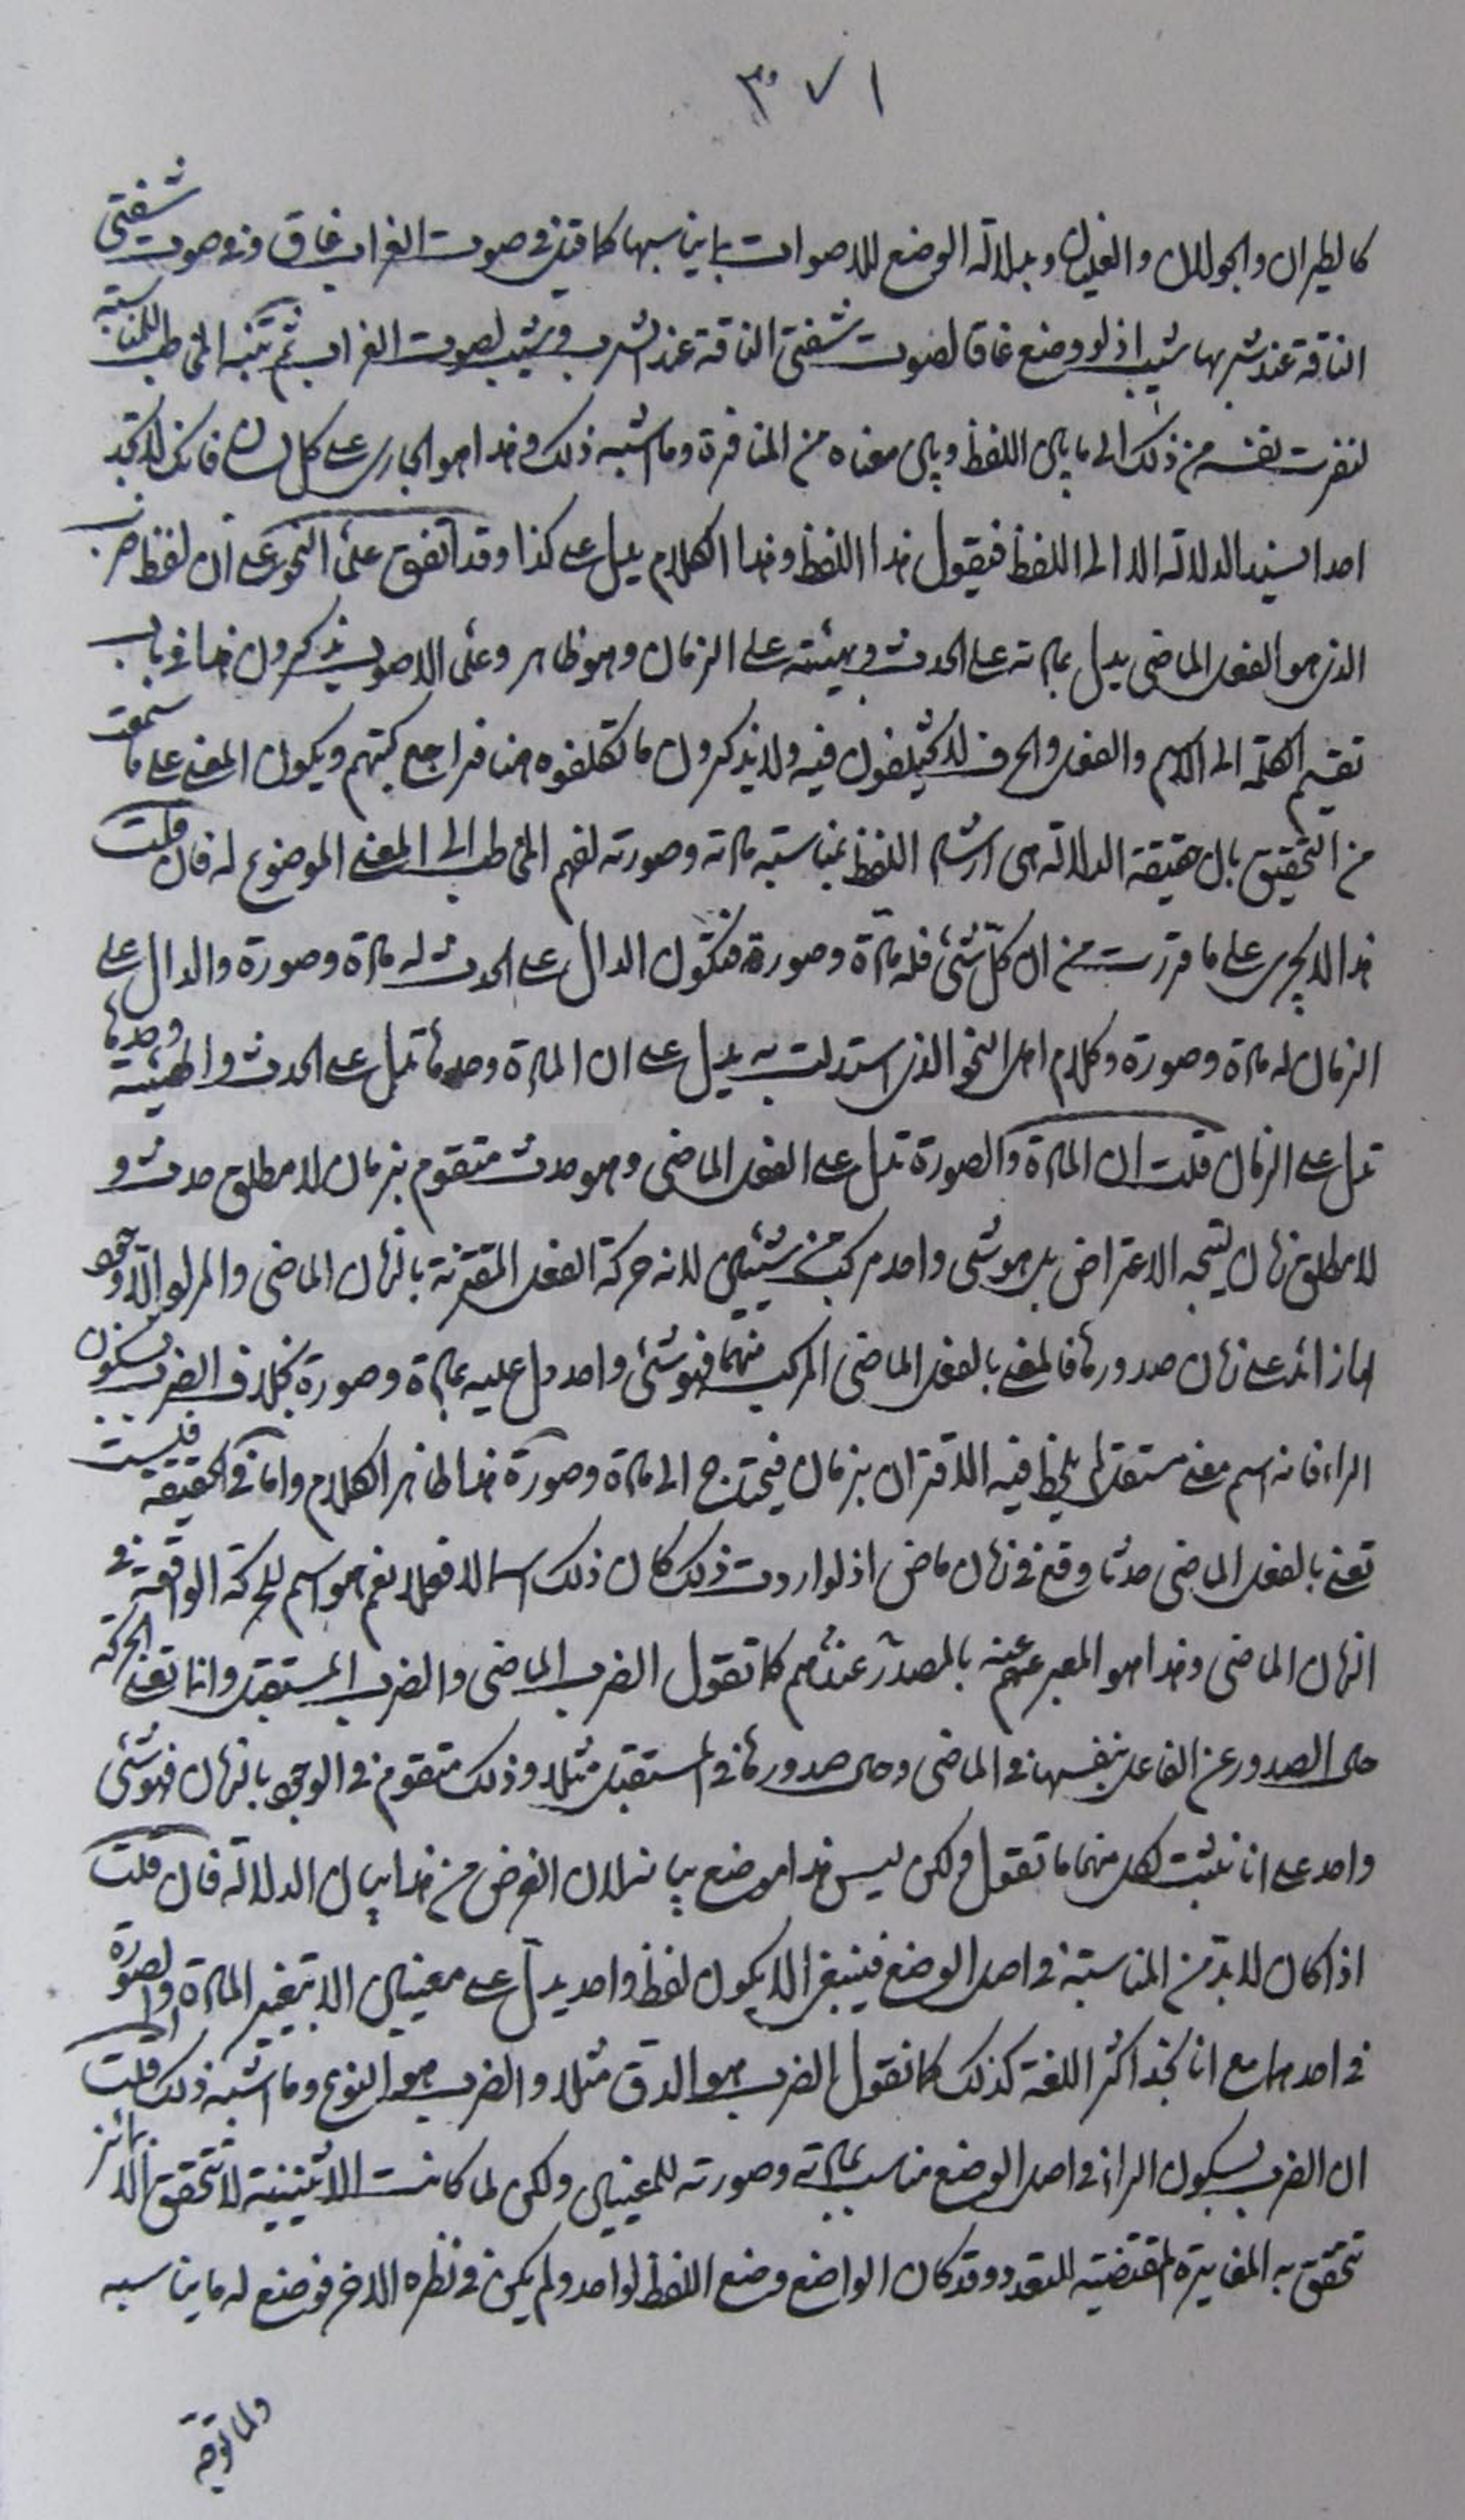 ٣٧١
كالطيران والجولان والغليان وبدلالة الوضع للاصوات بما يناسبها كما قيل في صوت الغراب غاق وفي صوت شفتي
الناقة عند شربها شيب اذ لو وضع غاق لصوت شفتي الناقة عند الشرب وشيب لصوت الغراب ثم تنبه المخاطب للمناسبة
لنفرت نفسه من ذلك الى ما بين اللفظ وبين معناه من المنافرة وما اشبه ذلك وهذا هو الجاري على كل لسان فانك لا تجد
احدا يسند الدلالة الا الى اللفظ فيقول هذا اللفظ وهذا الكلام يدل على كذا وقد اتفق علماء النحو على ان لفظ ضرب
الذي هو الفعل الماضي يدل بمادته على الحدث وبهيئته على الزمان وهو ظاهر وعلماء الاصول يذكرون هذا في باب
تقسيم الكلمة الى الاسم والفعل والحرف لا يختلفون فيه ولا يذكرون ما تكلفوه هنا فراجع كتبهم ويكون المعنى على ما سمعت
من التحقيق بان حقيقة الدلالة هي ارشاد اللفظ بمناسبة مادته وصورته لفهم المخاطب الى المعنى الموضوع له فان قلت
هذا لا يجري على ما قررت من ان كل شئ فله مادة وصورة فتكون الدال على الحدث له مادة وصورة والدال على
الزمان له مادة وصورة وكلام اهل النحو الذي استدللت به يدل على ان المادة وحدها تدل على الحدث والهيئة وحدها
تدل على الزمان قلت ان المادة والصورة تدل على الفعل الماضي وهو حدث متقوم بزمان لا مطلق حدث و
لا مطلق زمان ليتجه الاعتراض بل هو شئ واحد مركب من شيئين لانه حركة الفعل المقترنة بالزمان الماضي والمراد لا وجود
لها زائد على زمان صدورها فالمعنى بالفعل الماضي المركب منهما فهو شئ واحد دل عليه بمادة وصورة بخلاف الضرب بسكون
الراء فانه اسم معنى مستقل لم يلحظ فيه الاقتران بزمان فيحتاج الى مادة وصورة هذا ظاهر الكلام واما في الحقيقة فليست
تعني بالفعل الماضي حدثا وقع في زمان ماض اذ لو اردت ذلك كان ذلك اسما لا فعلا نعم هو اسم للحركة الواقعة في
الزمان الماضي وهذا هو المعبر عنه بالمصدر عندهم كما تقول الضرب الماضي والضرب المستقبل وانما تعني الحركة
حال الصدور عن الفاعل بنفسها في الماضي وحال صدورها في المستقبل مثلا وذلك متقوم في الوجود بالزمان فهو شئ
واحد على انا نثبت لكل منهما ما تقول ولكن ليس هذا موضع بيانه لان الغرض من هذا بيان الدلالة فان قلت
اذا كان لا بد من المناسبة في اصل الوضع فينبغي الا يكون لفظ واحد يدل على معنيين الا بتغيير المادة او الصورة
في احدهما مع انا نجد اكثر اللغة كذلك كما تقول الضرب هو الدق مثلا والضرب هو النوع وما اشبه ذلك قلت
ان الضرب بسكون الراء في اصل الوضع مناسب بمادته وصورته للمعنيين ولكن لما كانت الاثنينية لا تتحقق الا بمائز
تتحقق به المغايرة المقتضية للتعدد وقد كان الواضع وضع اللفظ لواحد ولم يكن في نظره الاخر فوضع له ما يناسبه
ولما توجه